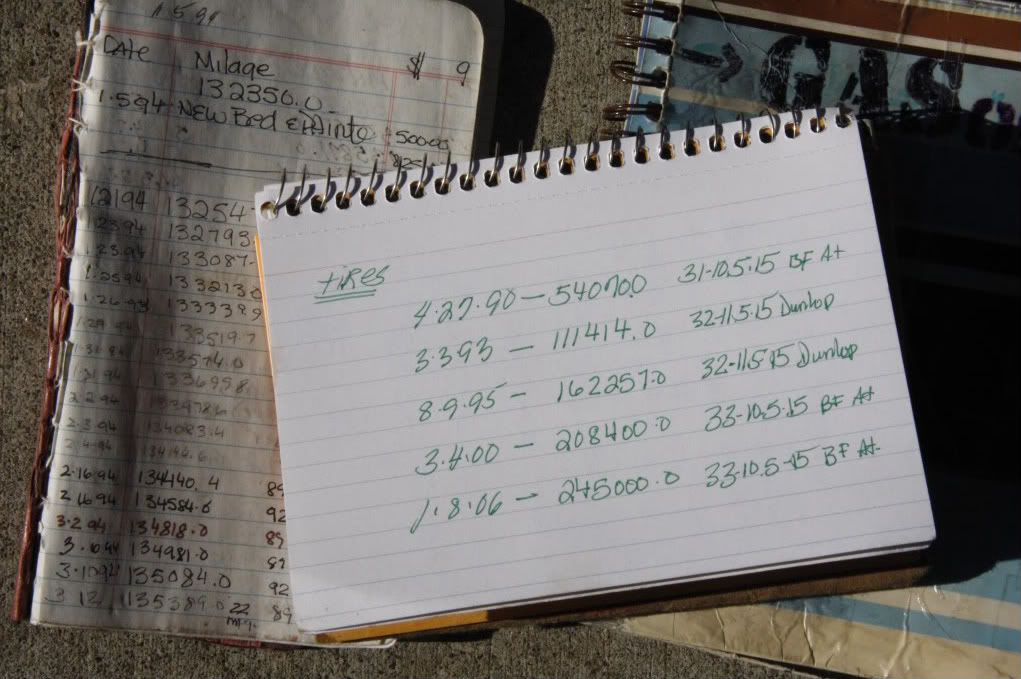 1.594
DATE Milage $ 9
132350.0
1.594 NEW Bed & Painte 50000
12194 13254
132793
1.2394 133087.
1.2594 133213.0
1.26.94 133389
133519.7
133574.0
133699.8
2.2.94
2.3.94 134083.4
2.4.94 134196.6
2.16.94 134440.4 89
2.16.94 134584.6 92
3.2.94 134818.0 89
3. 134981.0
3.1094 135084.0 92
3 12 135389.0 22 mpg. 89
GAS
tires
4.27.90 — 54070.0 31-10.5.15 BF At
3.393 — 111414.0 32-11.5.15 Dunlop
8.9.95 — 162257.0 32-11.5.15 Dunlop
3.4.00 — 208400.0 33-10.5.15 BF At
1.8.06 — 245000.0 33-10.5-15 BF At.